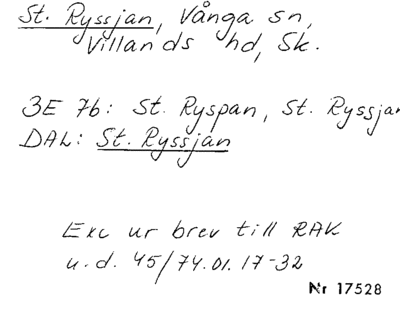 St. Ryssjan, Vånga sn,
Villands hd, Sk.
3E 7b: St. Ryspan, St. Ryssjan
DAL: St. Ryssjan
Exc ur brev till RAK
u.d. 45/74.01.17-32
Nr 17528